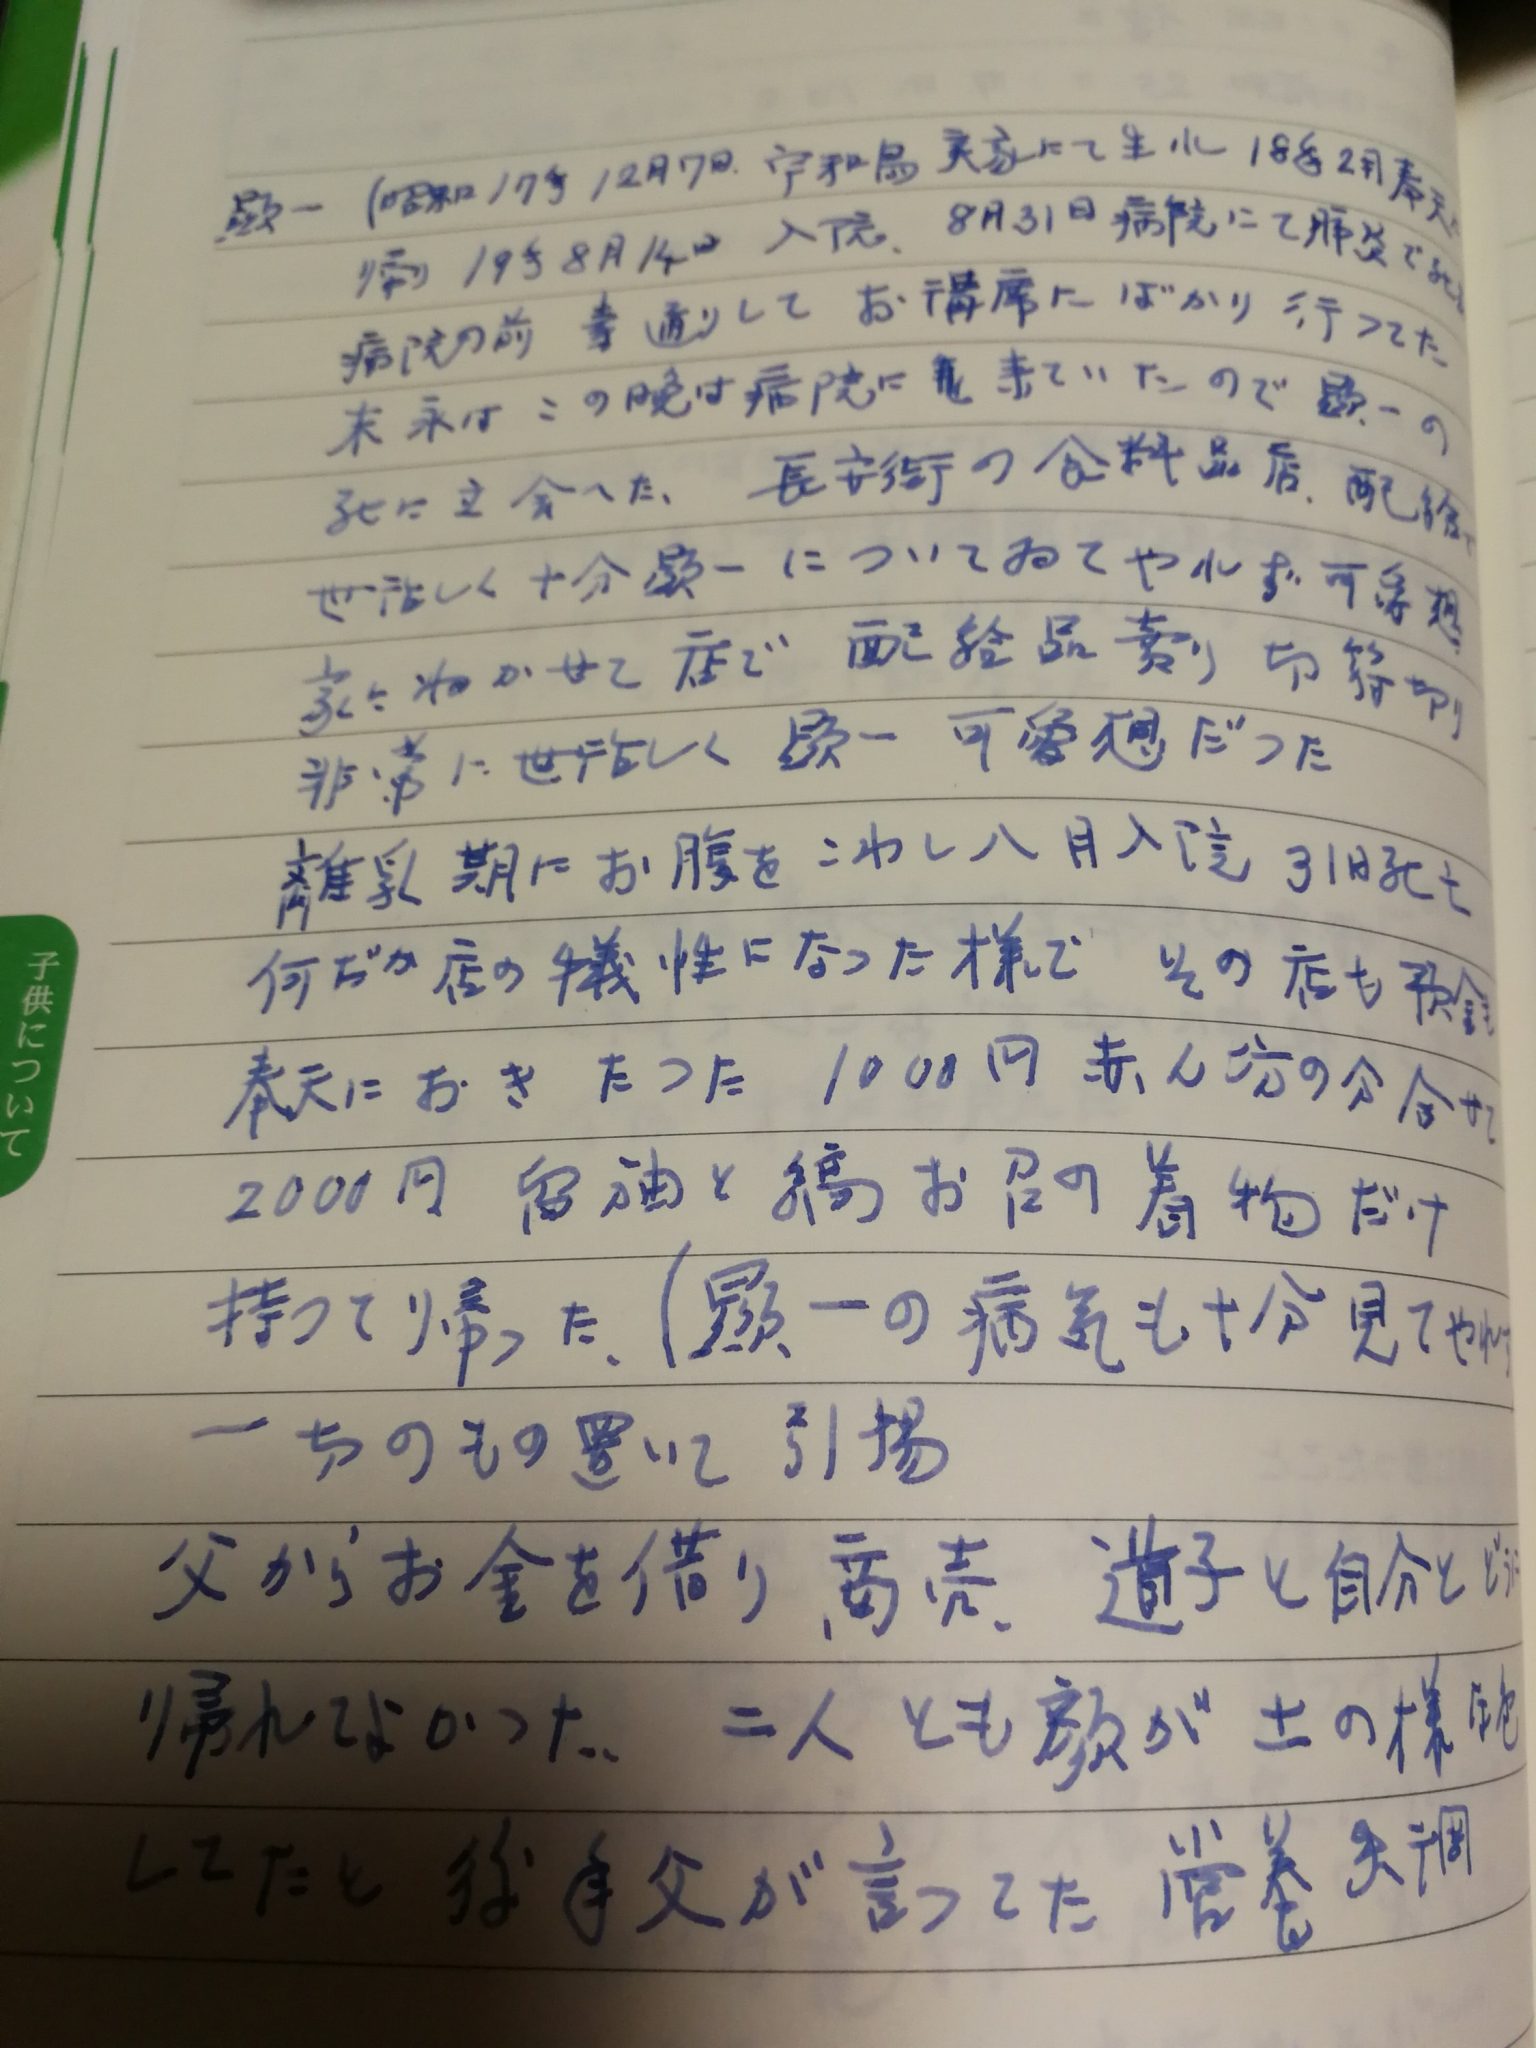 顕一 (昭和17年12月7日 宇和島 実家にて生れ 18年2月奉天に
帰り 19年8月14日 入院、8月31日病院にて肺炎で死亡
病院の前 素通りして お講席にばかり行つてた
末永は この晩は病院に来ていたので 顕一の
死に立会へた、 長安街の食料品店、配給で
世話しく十分顕一についてゐてやれず可愛想
家にねかせて店で 配給品売り 切符切り
非常に世話しく 顕一 可愛想だつた
離乳期にお腹をこわし八月入院 31日死亡
何だか店の犠性になつた様で その店も預金も
奉天におき たつた 1000円 赤ん坊の分合せて
2000円 と縞お召の着物だけ
持つて帰つた、(顕一の病気も十分見てやれず
一切のもの置いて引揚
父からお金を借り 商売、 道子と自分と
帰れてよかつた、 二人とも顔が土の様な色
してたと 後年父が言つてた 栄養失調
子供について